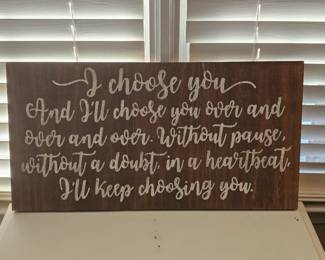 I choose you
And I'll choose you over and
over and over. Without pause,
without a doubt, in a heartbeat,
I'll keep choosing you.